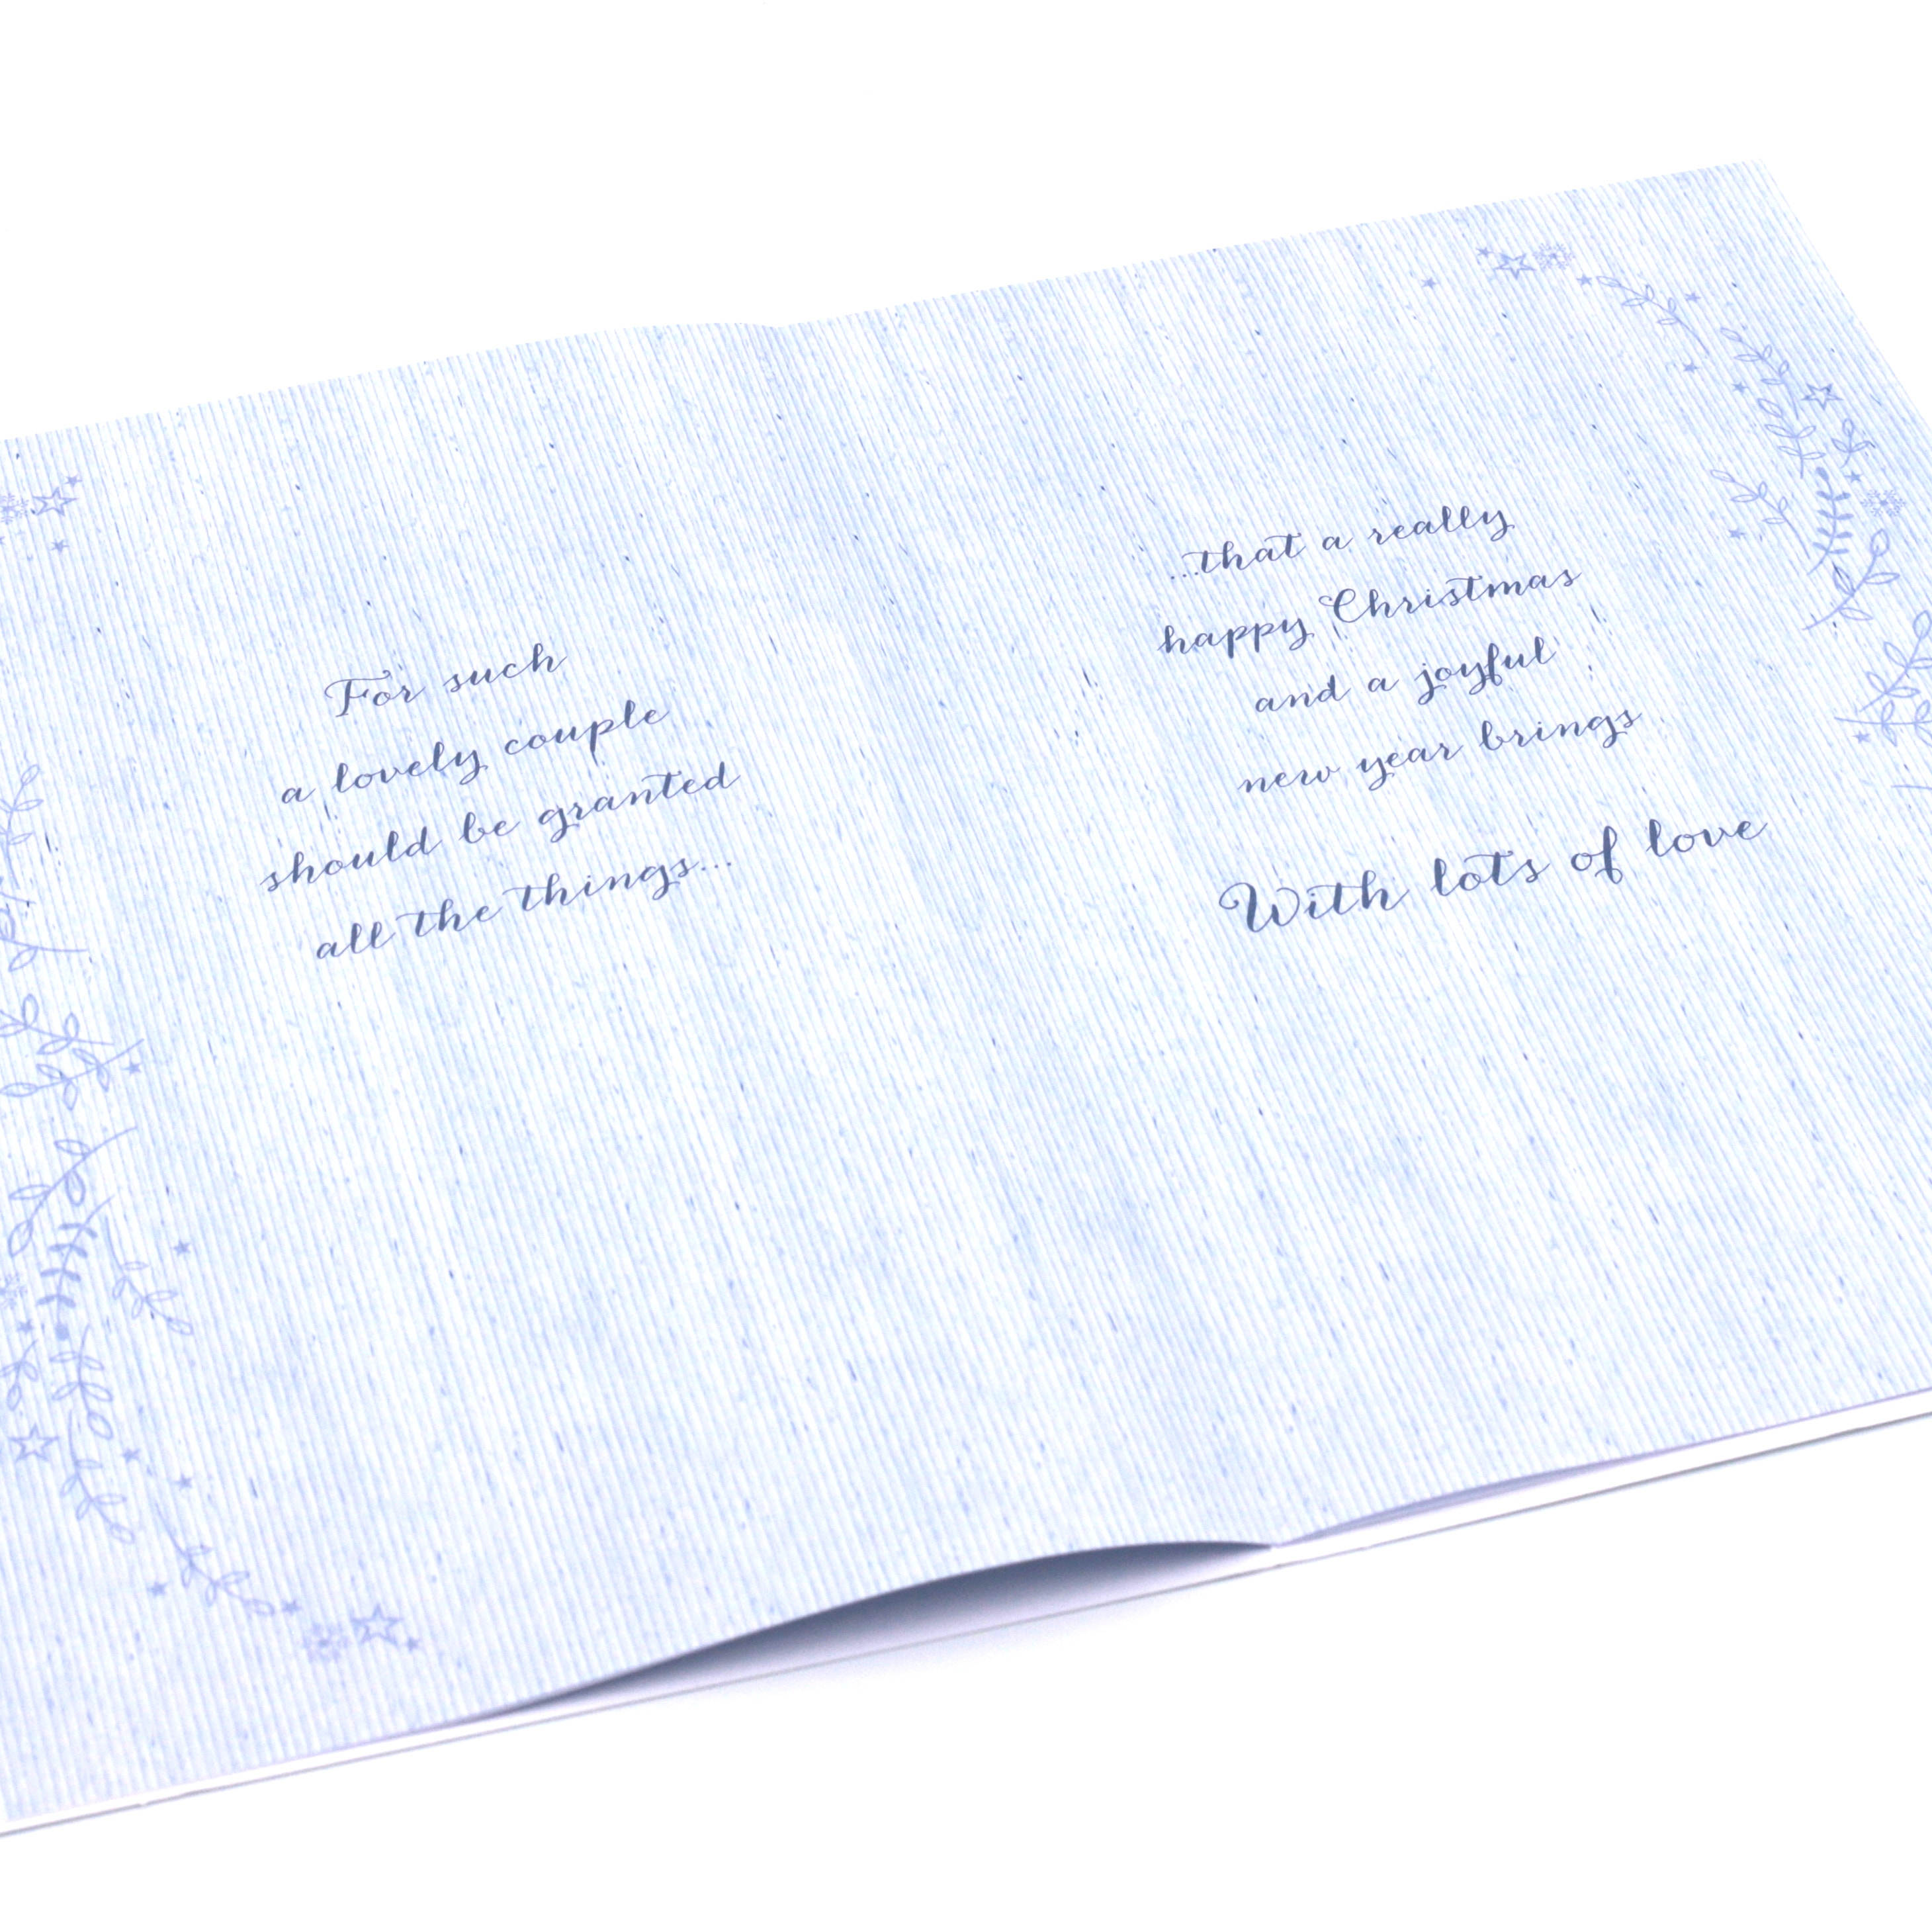 For such
a lovely couple
should be granted
all the things...
...that a really
happy Christmas
and a joyful
new year brings
With lots of love